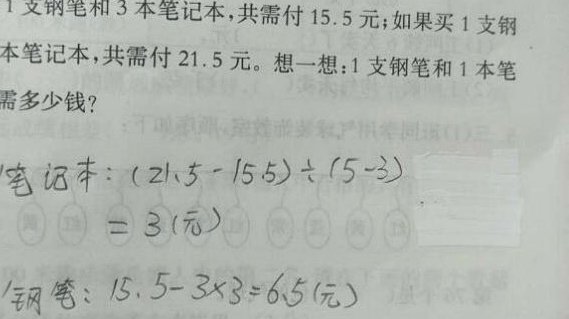 1支钢笔和3本笔记本,共需付15.5元;如果买1支钢
本笔记本,共需付21.5元。想一想:1支钢笔和1本笔
需多少钱?
笔记本:(21.5-15.5)÷(5-3)
=3(元)
钢笔:15.5-3×3=6.5(元)